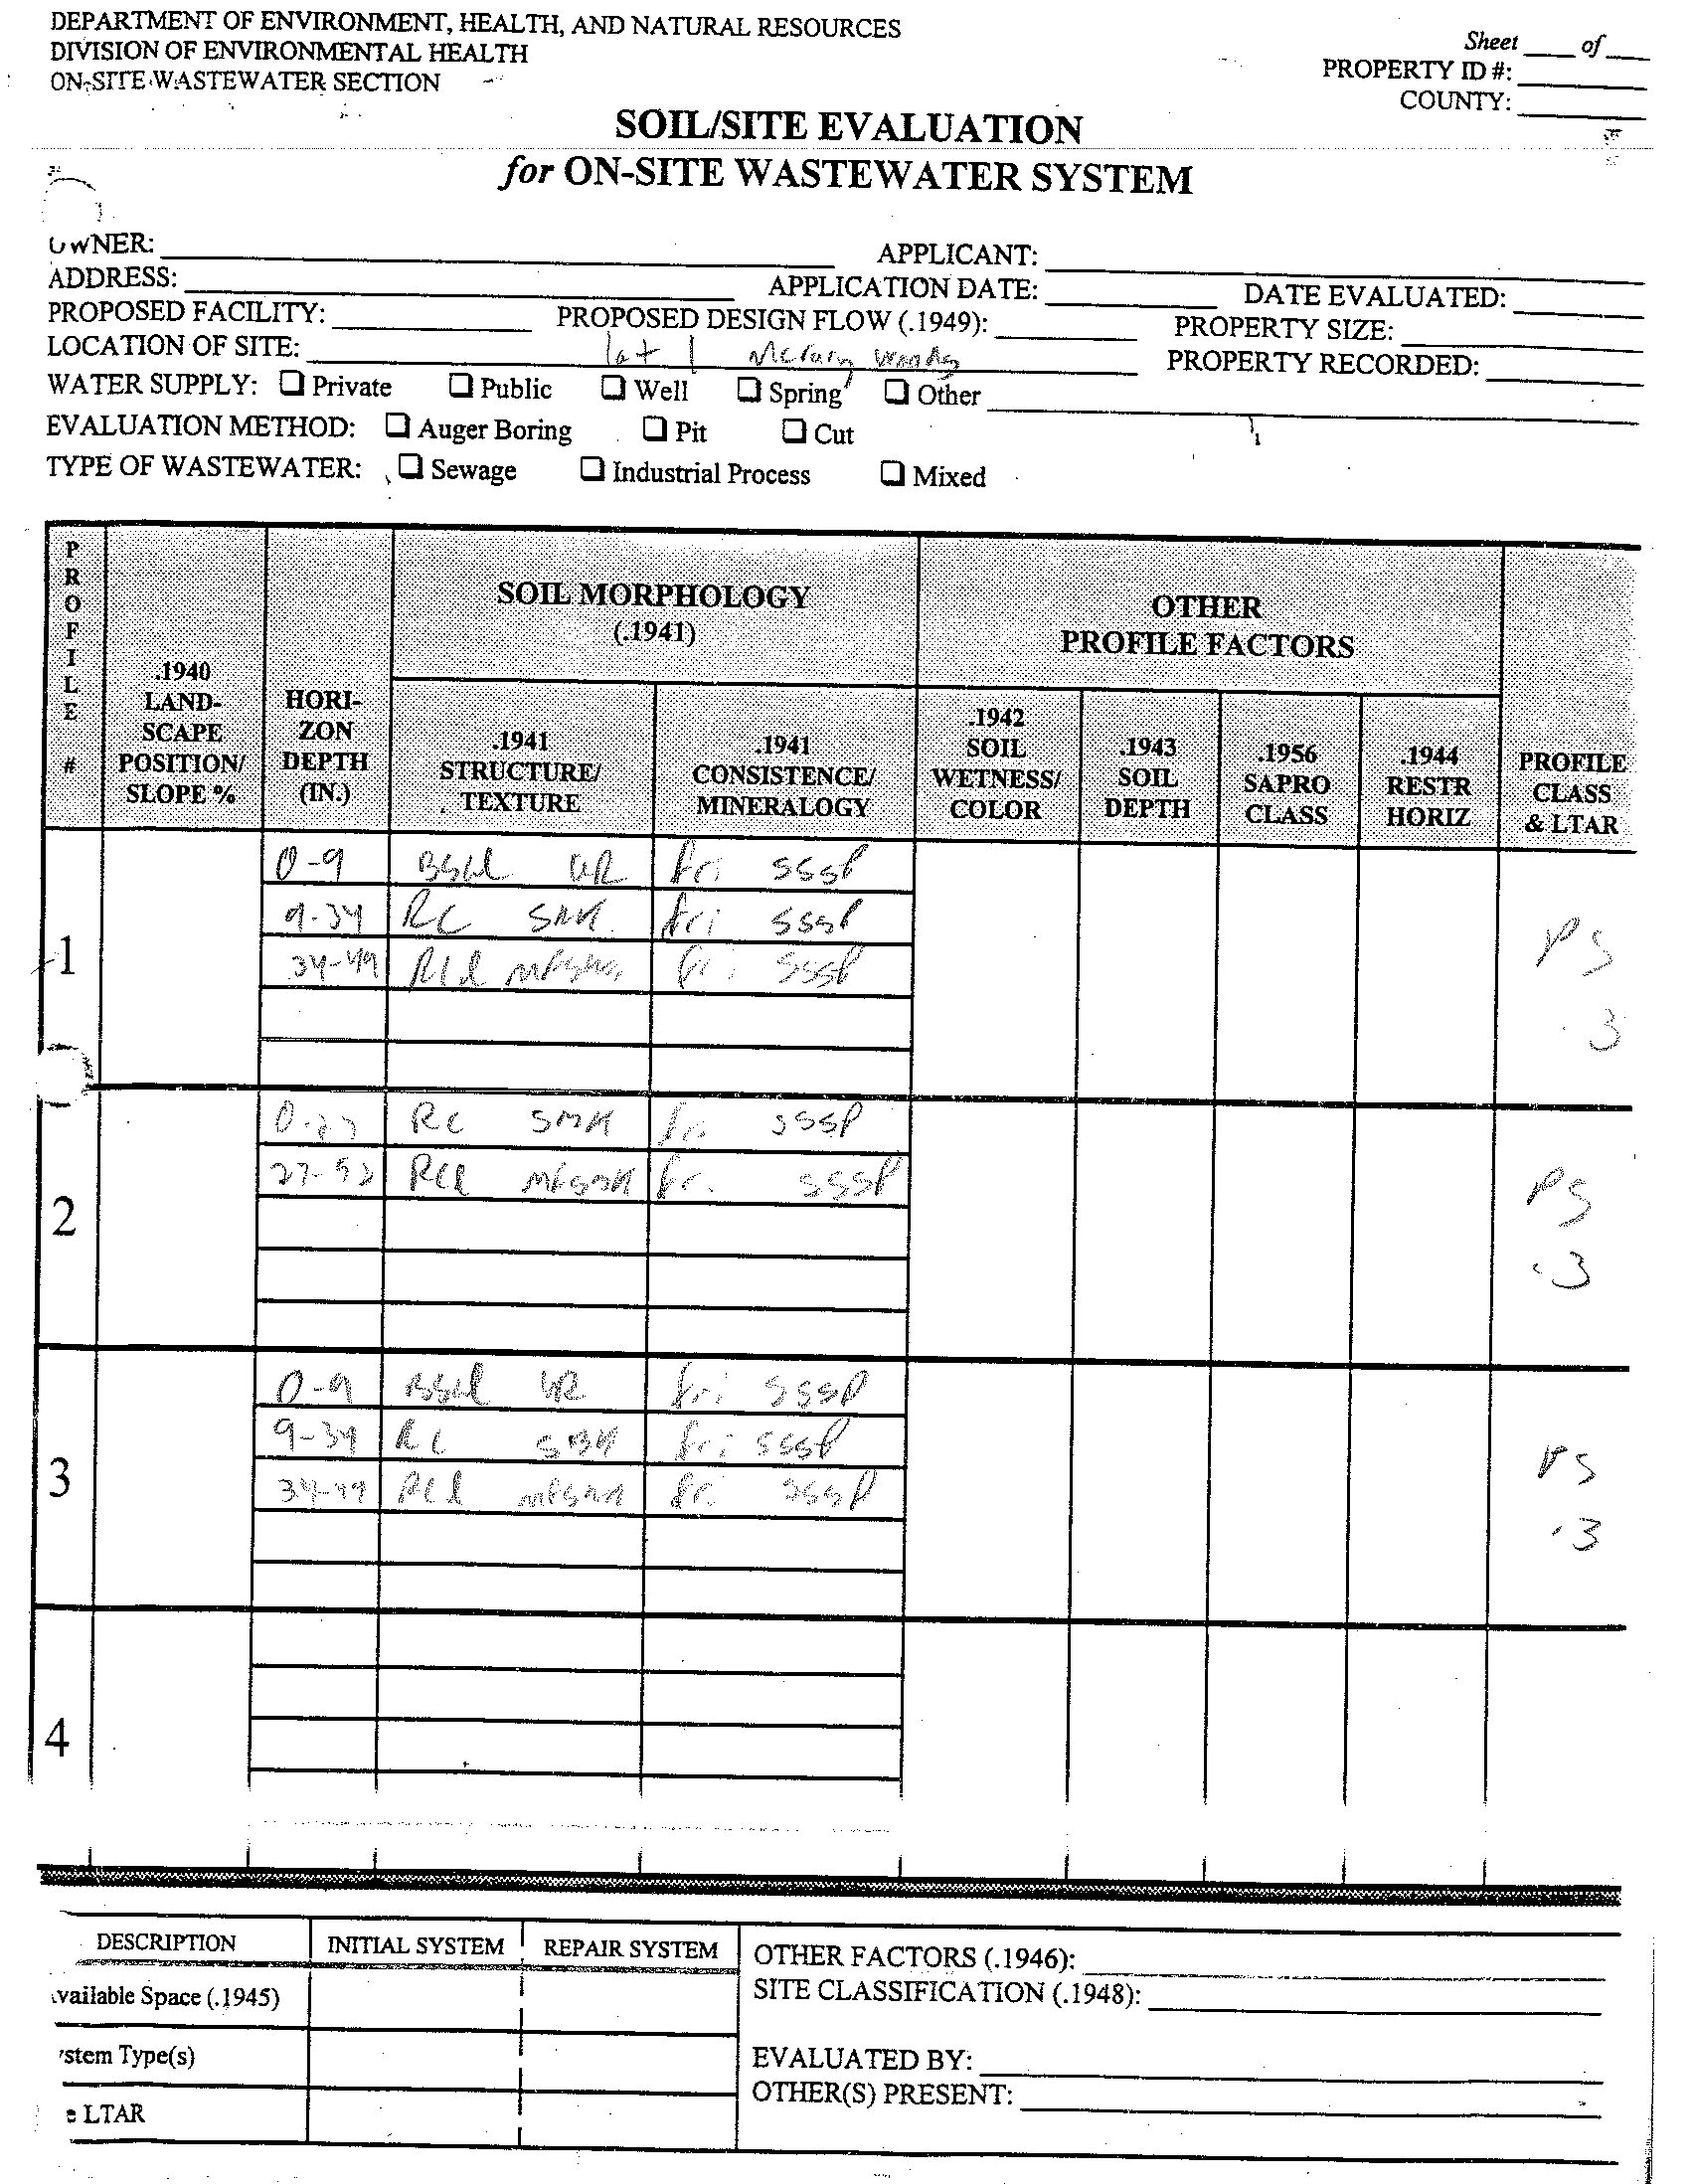 DEPARTMENT OF ENVIRONMENT, HEALTH, AND NATURAL RESOURCES
DIVISION OF ENVIRONMENTAL HEALTH
ON-SITE WASTEWATER SECTION
Sheet ____ of ____
PROPERTY ID #:
COUNTY:
SOIL/SITE EVALUATION
for ON-SITE WASTEWATER SYSTEM
OWNER: APPLICANT:
ADDRESS: APPLICATION DATE: DATE EVALUATED:
PROPOSED FACILITY: PROPOSED DESIGN FLOW (.1949): PROPERTY SIZE:
LOCATION OF SITE: lot 1 PROPERTY RECORDED:
WATER SUPPLY: ❑ Private ❑ Public ❑ Well ❑ Spring ❑ Other
EVALUATION METHOD: ❑ Auger Boring ❑ Pit ❑ Cut
TYPE OF WASTEWATER: ❑ Sewage ❑ Industrial Process ❑ Mixed
PROFILE #
.1940 LAND-SCAPE POSITION/ SLOPE %
HORI-ZON DEPTH (IN.)
SOIL MORPHOLOGY (.1941)
.1941 STRUCTURE/ TEXTURE
.1941 CONSISTENCE/ MINERALOGY
OTHER PROFILE FACTORS
.1942 SOIL WETNESS/ COLOR
.1943 SOIL DEPTH
.1956 SAPRO CLASS
.1944 RESTR HORIZ
PROFILE CLASS & LTAR
1
0-9 GR fri SSSP
9-34 RC SBK fri SSSP
34-49 RCL fri SSSP
PS
.3
2
RC SBK fri SSSP
27-52 RCL fri SSSP
PS
.3
3
0-9 GR fri SSSP
9-34 RC SBK fri SSSP
34-49 RCL fri SSSP
PS
.3
4
DESCRIPTION INITIAL SYSTEM REPAIR SYSTEM
vailable Space (.1945)
stem Type(s)
e LTAR
OTHER FACTORS (.1946):
SITE CLASSIFICATION (.1948):
EVALUATED BY:
OTHER(S) PRESENT: